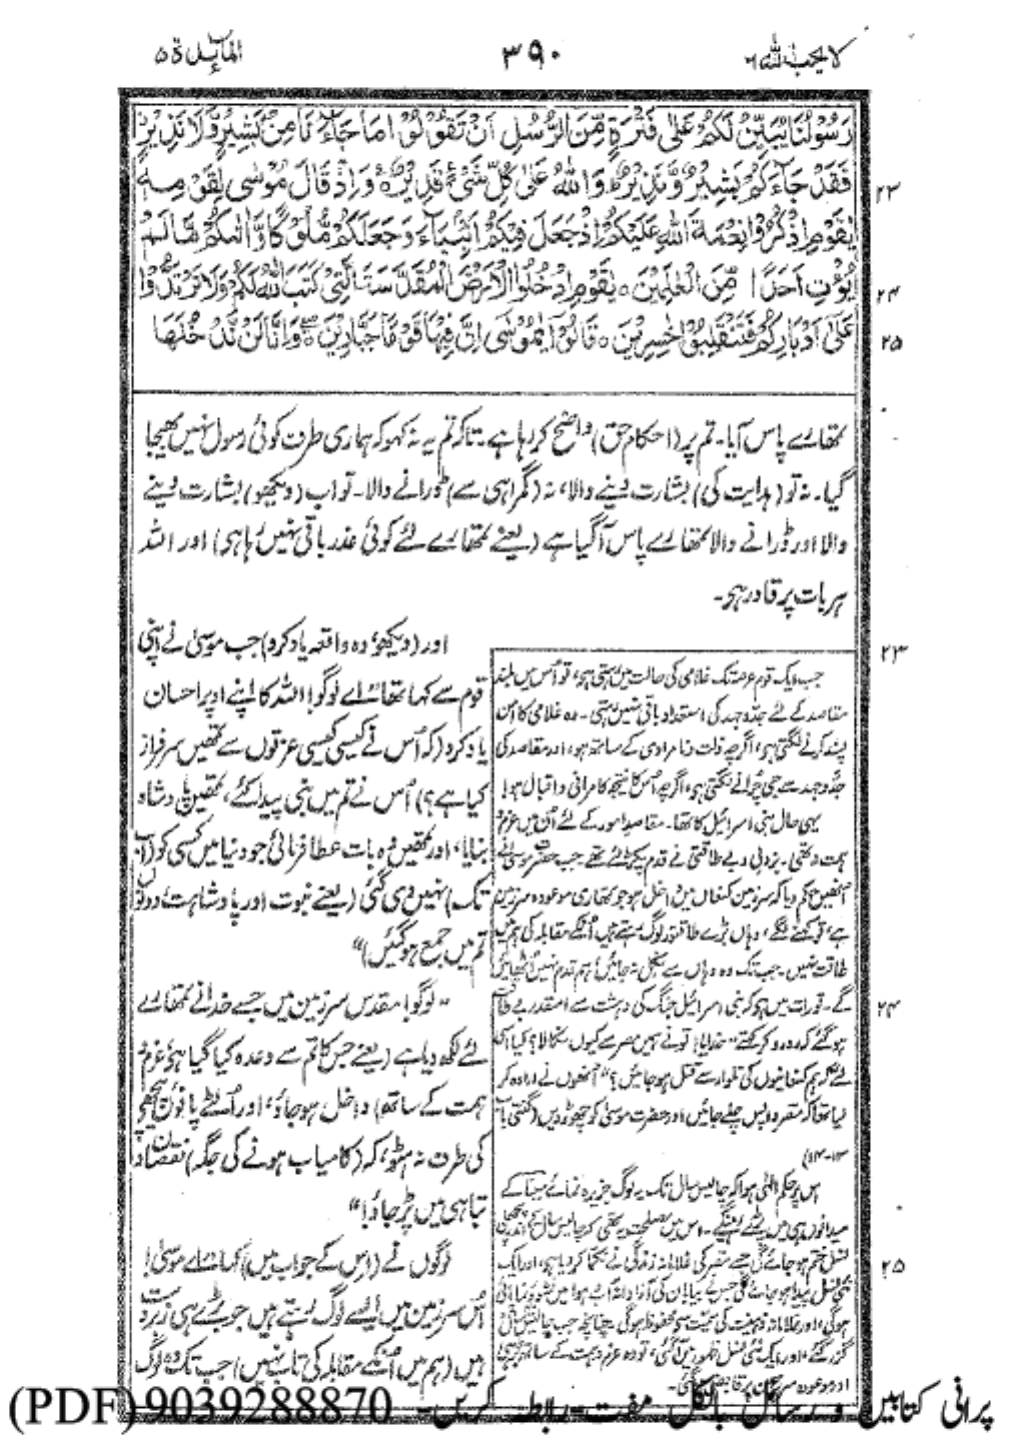 لا یحب اللہ ۶
۳۹۰
المآئدۃ ۵
رَسُوْلُنَا یُبَیِّنُ لَکُمْ عَلٰی فَتْرَةٍ مِّنَ الرُّسُلِ اَنْ تَقُوْلُوْا مَا جَآءَنَا مِنْۢ بَشِیْرٍ وَّلَا نَذِیْرٍ
فَقَدْ جَآءَکُمْ بَشِیْرٌ وَّنَذِیْرٌ وَاللّٰهُ عَلٰی کُلِّ شَیْءٍ قَدِیْرٌ ○ وَاِذْ قَالَ مُوْسٰی لِقَوْمِهٖ
۲۳
یٰقَوْمِ اذْکُرُوْا نِعْمَةَ اللّٰهِ عَلَیْکُمْ اِذْ جَعَلَ فِیْکُمْ اَنْۢبِیَآءَ وَجَعَلَکُمْ مُّلُوْکًا وَّاٰتٰىکُمْ مَّا لَمْ
یُؤْتِ اَحَدًا مِّنَ الْعٰلَمِیْنَ ○ یٰقَوْمِ ادْخُلُوا الْاَرْضَ الْمُقَدَّسَةَ الَّتِیْ کَتَبَ اللّٰهُ لَکُمْ وَلَا تَرْتَدُّوْا
۲۴
عَلٰٓی اَدْبَارِکُمْ فَتَنْقَلِبُوْا خٰسِرِیْنَ ○ قَالُوْا یٰمُوْسٰٓی اِنَّ فِیْهَا قَوْمًا جَبَّارِیْنَ وَاِنَّا لَنْ نَّدْخُلَهَا
۲۵
تمھارے پاس آیا۔ تم پر (احکام حق) واضح کر رہا ہے۔ تاکہ تم یہ نہ کہو کہ ہماری طرف کوئی رسول نہیں بھیجا
گیا۔ نہ تو (ہدایت کی) بشارت دینے والا، نہ (گمراہی سے) ڈرانے والا۔ تو اب (دیکھو) بشارت دینے
والا اور ڈرانے والا تمھارے پاس آگیا ہے (یعنے تمھارے لئے کوئی عذر باقی نہیں رہا ہی) اور اللہ
ہر بات پر قادر ہو۔
اور (دیکھو، وہ واقعہ یاد کرو) جب موسیٰ نے اپنی
۲۳
قوم سے کہا تھا "اے لوگو! اللہ کا اپنے اوپر احسان
یاد کرو (کہ اُس نے کیسی کیسی عزتوں سے تمھیں سرفراز
کیا ہے؟) اُس نے تم میں نبی پیدا کئے، تمھیں پادشاہ
بنایا، اور تمھیں وہ بات عطا فرمائی جو دنیا میں کسی کو (اب
تک) نہیں دی گئی (یعنے نبوت اور پادشاہت، دونوں
تم میں جمع ہو گئیں)"
"لوگو! مقدس سرزمین میں جسے خدا نے تمھارے
۲۴
لئے لکھ دیا ہے (یعنے جس کا تم سے وعدہ کیا گیا ہی، عزم و
ہمت کے ساتھ) داخل ہو جاؤ، اور اُلٹے پانوں پیچھے
کی طرف نہ ہٹو، کہ (کامیاب ہونے کی جگہ) نقصان و
تباہی میں پڑ جاؤ!"
لوگوں نے (اِس کے جواب میں) کہا "اے موسیٰ!
۲۵
اُس سرزمین میں ایسے لوگ رہتے ہیں جو بڑے ہی زبردست
ہیں (ہم میں اُنکے مقابلہ کی تاب نہیں) جب تک وہ لوگ
جب ایک قوم عرصہ تک غلامی کی حالت میں رہتی ہی، تو اُس میں بلند
مقاصد کے لئے جد و جہد کی استعداد باقی نہیں رہتی۔ وہ غلامی کا امن
پسند کرنے لگتی ہی، اگرچہ ذلت و نامرادی کے ساتھ ہو، اور مقاصد کی
جد و جہد سے جی چُرانے لگتی ہو، اگرچہ اُس کا نتیجہ کامرانی و اقبال ہو!
یہی حال بنی اسرائیل کا تھا۔ مقاصد امور کے لئے اُن میں عزم و
ہمت نہ تھی۔ بزدلی و بے طاقتی نے قدم پکڑ لئے تھے جب حضرت موسیٰ نے
اُنھیں حکم دیا کہ سرزمین کنعان میں داخل ہو جو تمھاری موعودہ سرزمین
ہے، تو کہنے لگے، وہاں بڑے طاقتور لوگ رہتے ہیں اُنکے مقابلہ کی ہم میں
طاقت نہیں۔ جب تک وہ وہاں سے نکل نہ جائیں، ہم قدم نہیں اُٹھائیں
گے۔ تورات میں ہو کہ بنی اسرائیل جنگ کی دہشت سے اسقدر بے
ہو گئے کہ رو رو کر کہتے "خدایا! تو نے ہمیں مصر سے کیوں نکالا؟ کیا اسی
لئے کہ ہم کنعانیوں کی تلوار سے قتل ہو جائیں؟" اُنھوں نے ارادہ کر
لیا تھا کہ مصر واپس چلے جائیں اور حضرت موسیٰ کو چھوڑ دیں (گنتی باب
۱۳-۱۴)
اس پر حکم الٰہی ہوا کہ چالیس سال تک یہ لوگ جزیرہ نمائے سینا کے
میدانوں ہی میں پڑے رہینگے۔ اس میں مصلحت یہ تھی کہ چالیس سال کے اندر پچھلی
نسل ختم ہو جائے گی جسے مصر کی غلامانہ زندگی نے نکما کر دیا ہو، اور ایک
نئی نسل پیدا ہو جائے گی جس نے بیابان کی آزاد آب و ہوا میں نشو و نما پائی
ہوگی، اور غلامانہ ذہنیت کی سمیت سے محفوظ ہوگی۔ چنانچہ جب چالیس سال
گزر گئے، اور ایک نئی نسل ظہور میں آ گئی، تو وہ عزم و ہمت کے ساتھ بڑھی
اور موعودہ سرزمین پر قابض
پرانی کتابیں و رسائل بالکل مفت رابطہ کریں۔ 9039288870 (PDF)